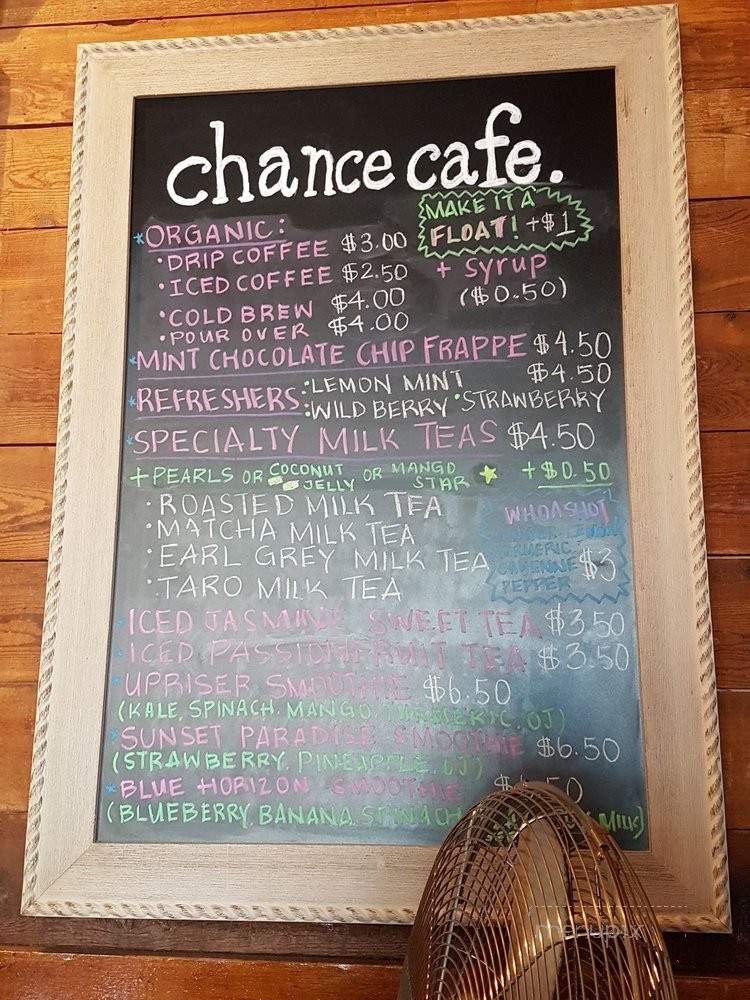 chance cafe.
MAKE IT A
FLOAT! +$1
*ORGANIC:
•DRIP COFFEE $3.00
•ICED COFFEE $2.50
+ syrup
($0.50)
•COLD BREW $4.00
•POUR OVER $4.00
*MINT CHOCOLATE CHIP FRAPPE $4.50
$4.50
*REFRESHERS: •LEMON MINT
•WILD BERRY •STRAWBERRY
*SPECIALTY MILK TEAS $4.50
+PEARLS OR COCONUT JELLY OR MANGO STAR +$0.50
•ROASTED MILK TEA
•MATCHA MILK TEA
•EARL GREY MILK TEA
•TARO MILK TEA
WHOASHOT
TURMERIC,
CAYENNE
PEPPER $3
*ICED JASMINE SWEET TEA $3.50
*ICED PASSIONFRUIT TEA $3.50
*UPRISER SMOOTHIE $6.50
(KALE, SPINACH, MANGO, TURMERIC, OJ)
*SUNSET PARADISE SMOOTHIE $6.50
(STRAWBERRY, PINEAPPLE, OJ)
*BLUE HORIZON SMOOTHIE
(BLUEBERRY, BANANA, SPINACH MILK)
menupix